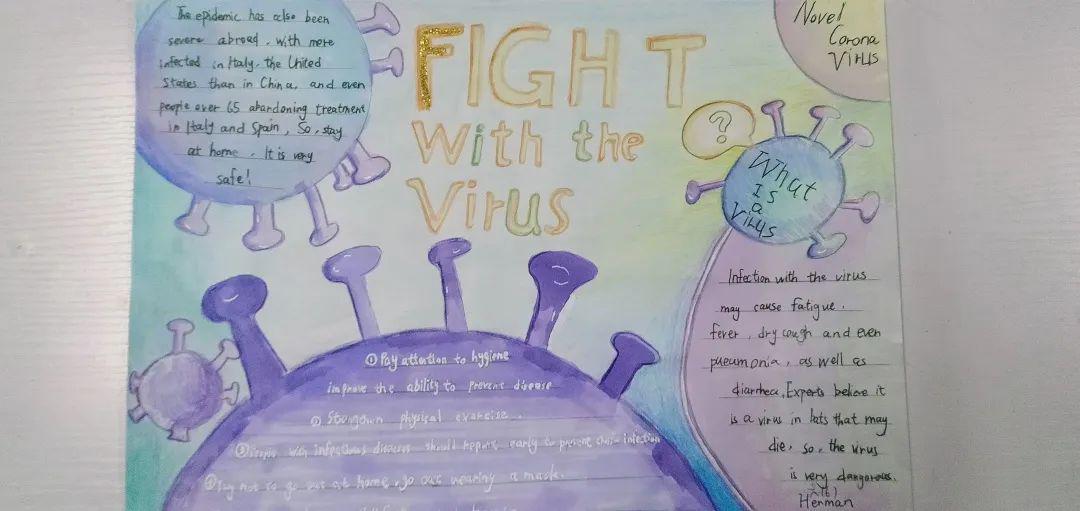 The epidemic has also been
severe abroad, with more
infected in Italy, the United
States than in China, and even
people over 65 abandoning treatment
in Italy and Spain, So, stay
at home. It is very
safe!
FIGHT
With the
Virus
Novel
Corona
Virus
?
What
Is
a
Virus
Infection with the virus
may cause fatigue.
fever, dry cough and even
pneumonia, as well as
diarrhea. Experts believe it
is a virus in bats that may
die, so, the virus
is very dangerous.
Herman
① Pay attention to hygiene
improve the ability to prevent disease
② physical exercise.
③ with infectious diseases should early to prevent infection
④ not to go out at home, go out wearing a mask.